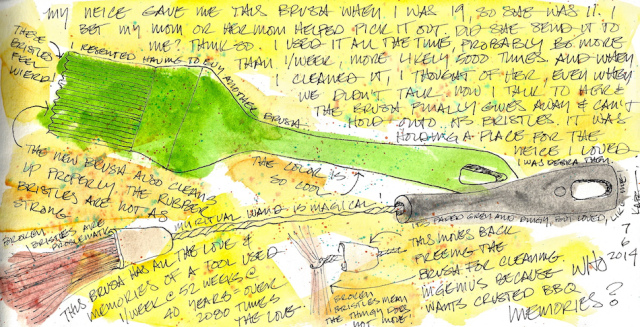 MY NEICE GAVE ME THIS BRUSH WHEN I WAS 19, SO SHE WAS 11. I
BET MY MOM OR HER MOM HELPED PICK IT OUT. DID SHE SEND IT TO
ME? THINK SO. I USED IT ALL THE TIME, PROBABLY BQ MORE
THAN 1/WEEK, MORE LIKELY 5000 TIMES AND WHEN
I CLEANED IT, I THOUGHT OF HER, EVEN WHEN
WE DIDN'T TALK. NOW I TALK TO HERE
THE BRUSH FINALLY GIVES AWAY & CAN'T
HOLD ONTO ITS BRISTLES. IT WAS
HOLDING A PLACE FOR THE
NEICE I LOVED.
I WAS DEBRA THEN.
THESE
BRISTLES
FEEL
WIERD!
I RESENTED HAVING TO BUY ANOTHER
BRUSH
THE COLOR IS
SO COOL
THE NEW BRUSH ALSO CLEANS
UP PROPERLY. THE RUBBER
BRISTLES ARE NOT AS
STRONG.
MY RITUAL WAND IS MAGICAL
BROKEN
BRISTLES ARE
PROBLEMATIC
ITS FADED GREY AND DINGY, BUT LOVED, LIKE ME!
THIS BRUSH HAS ALL THE LOVE &
MEMORIES OF A TOOL USED
1/WEEK @ 52 WEEKS @
40 YEARS = OVER
2080 TIMES
THE LOVE
BROKEN
BRISTLES MEAN
THE THINGY DOES
NOT MOVE
THIS MOVES BACK
FREEING THE
BRUSH FOR CLEANING.
INGENIUS BECAUSE WHO
WANTS CRUSTED BBQ
MEMORIES?
7
6
2014